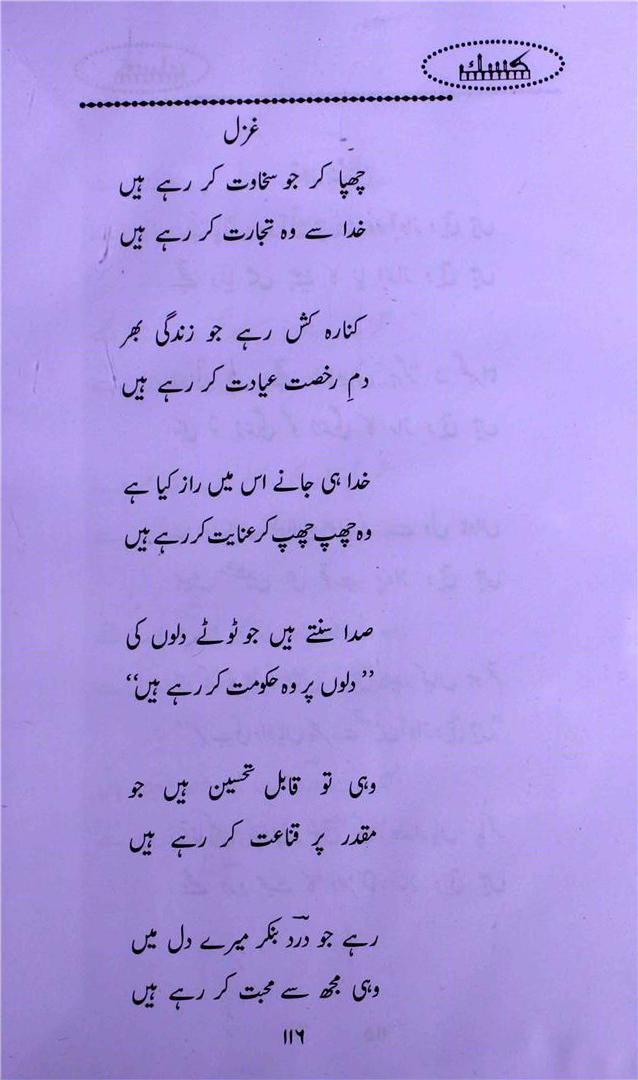 کسک
غزل
چھپا کر جو سخاوت کر رہے ہیں
خدا سے وہ تجارت کر رہے ہیں
کنارہ کش رہے جو زندگی بھر
دمِ رخصت عیادت کر رہے ہیں
خدا ہی جانے اس میں راز کیا ہے
وہ چھپ چھپ کر عنایت کر رہے ہیں
صدا سنتے ہیں جو ٹوٹے دلوں کی
”دلوں پر وہ حکومت کر رہے ہیں“
وہی تو قابل تحسین ہیں جو
مقدر پر قناعت کر رہے ہیں
رہے جو درد بنکر میرے دل میں
وہی مجھ سے محبت کر رہے ہیں
۱۱۶